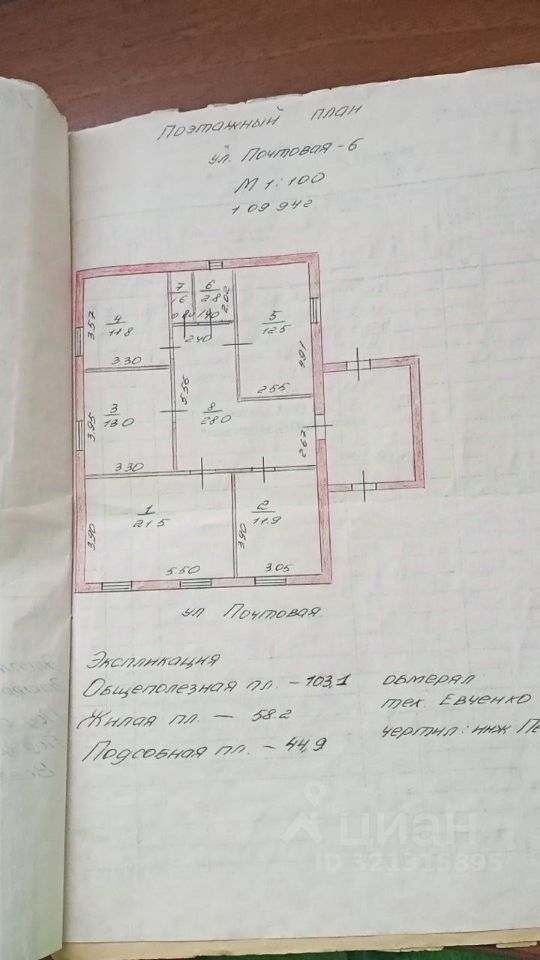 Поэтажный план
ул. Почтовая-6
М 1:100
1 09 94г
7
6
2.8
2.02
4
11.8
3.57
0.80
1.40
2.40
5
12.5
4.91
3.30
5.56
2.55
3
13.0
3.95
8
28.0
2.67
3.30
1
21.5
3.90
2
11.9
3.90
5.50
3.05
ул Почтовая
Экспликация
Общеполезная пл. - 103,1
Жилая пл. - 58.2
Подсобная пл. - 44,9
обмерял
тех. Евченко
чертил: инж
циан
ID 321315895